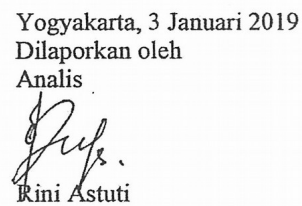 Yogyakarta, 3 Januari 2019
Dilaporkan oleh
Analis
Rini Astuti